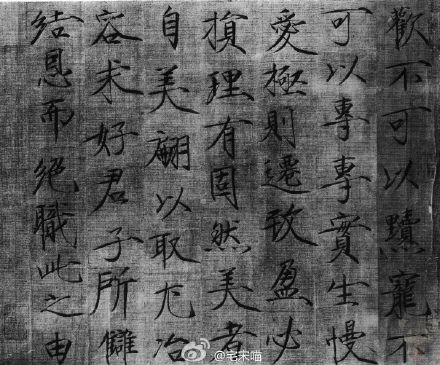 歡不可以黷寵不
可以專專實生慢
愛極則遷致盈必
損理有固然美者
自美翩以取尤冶
容求好君子所讎
結恩而絕職此之由
@宅宋喵